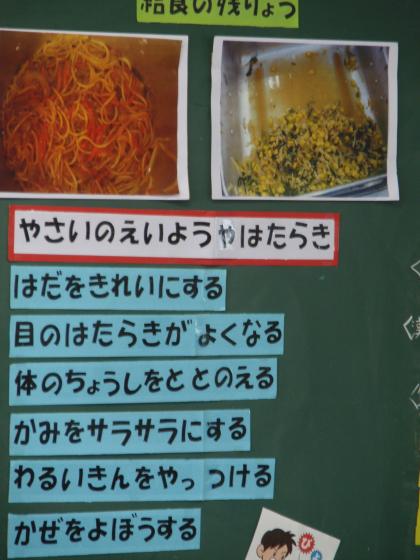 給食の残りょう
やさいのえいようやはたらき
はだをきれいにする
目のはたらきがよくなる
体のちょうしをととのえる
かみをサラサラにする
わるいきんをやっつける
かぜをよぼうする